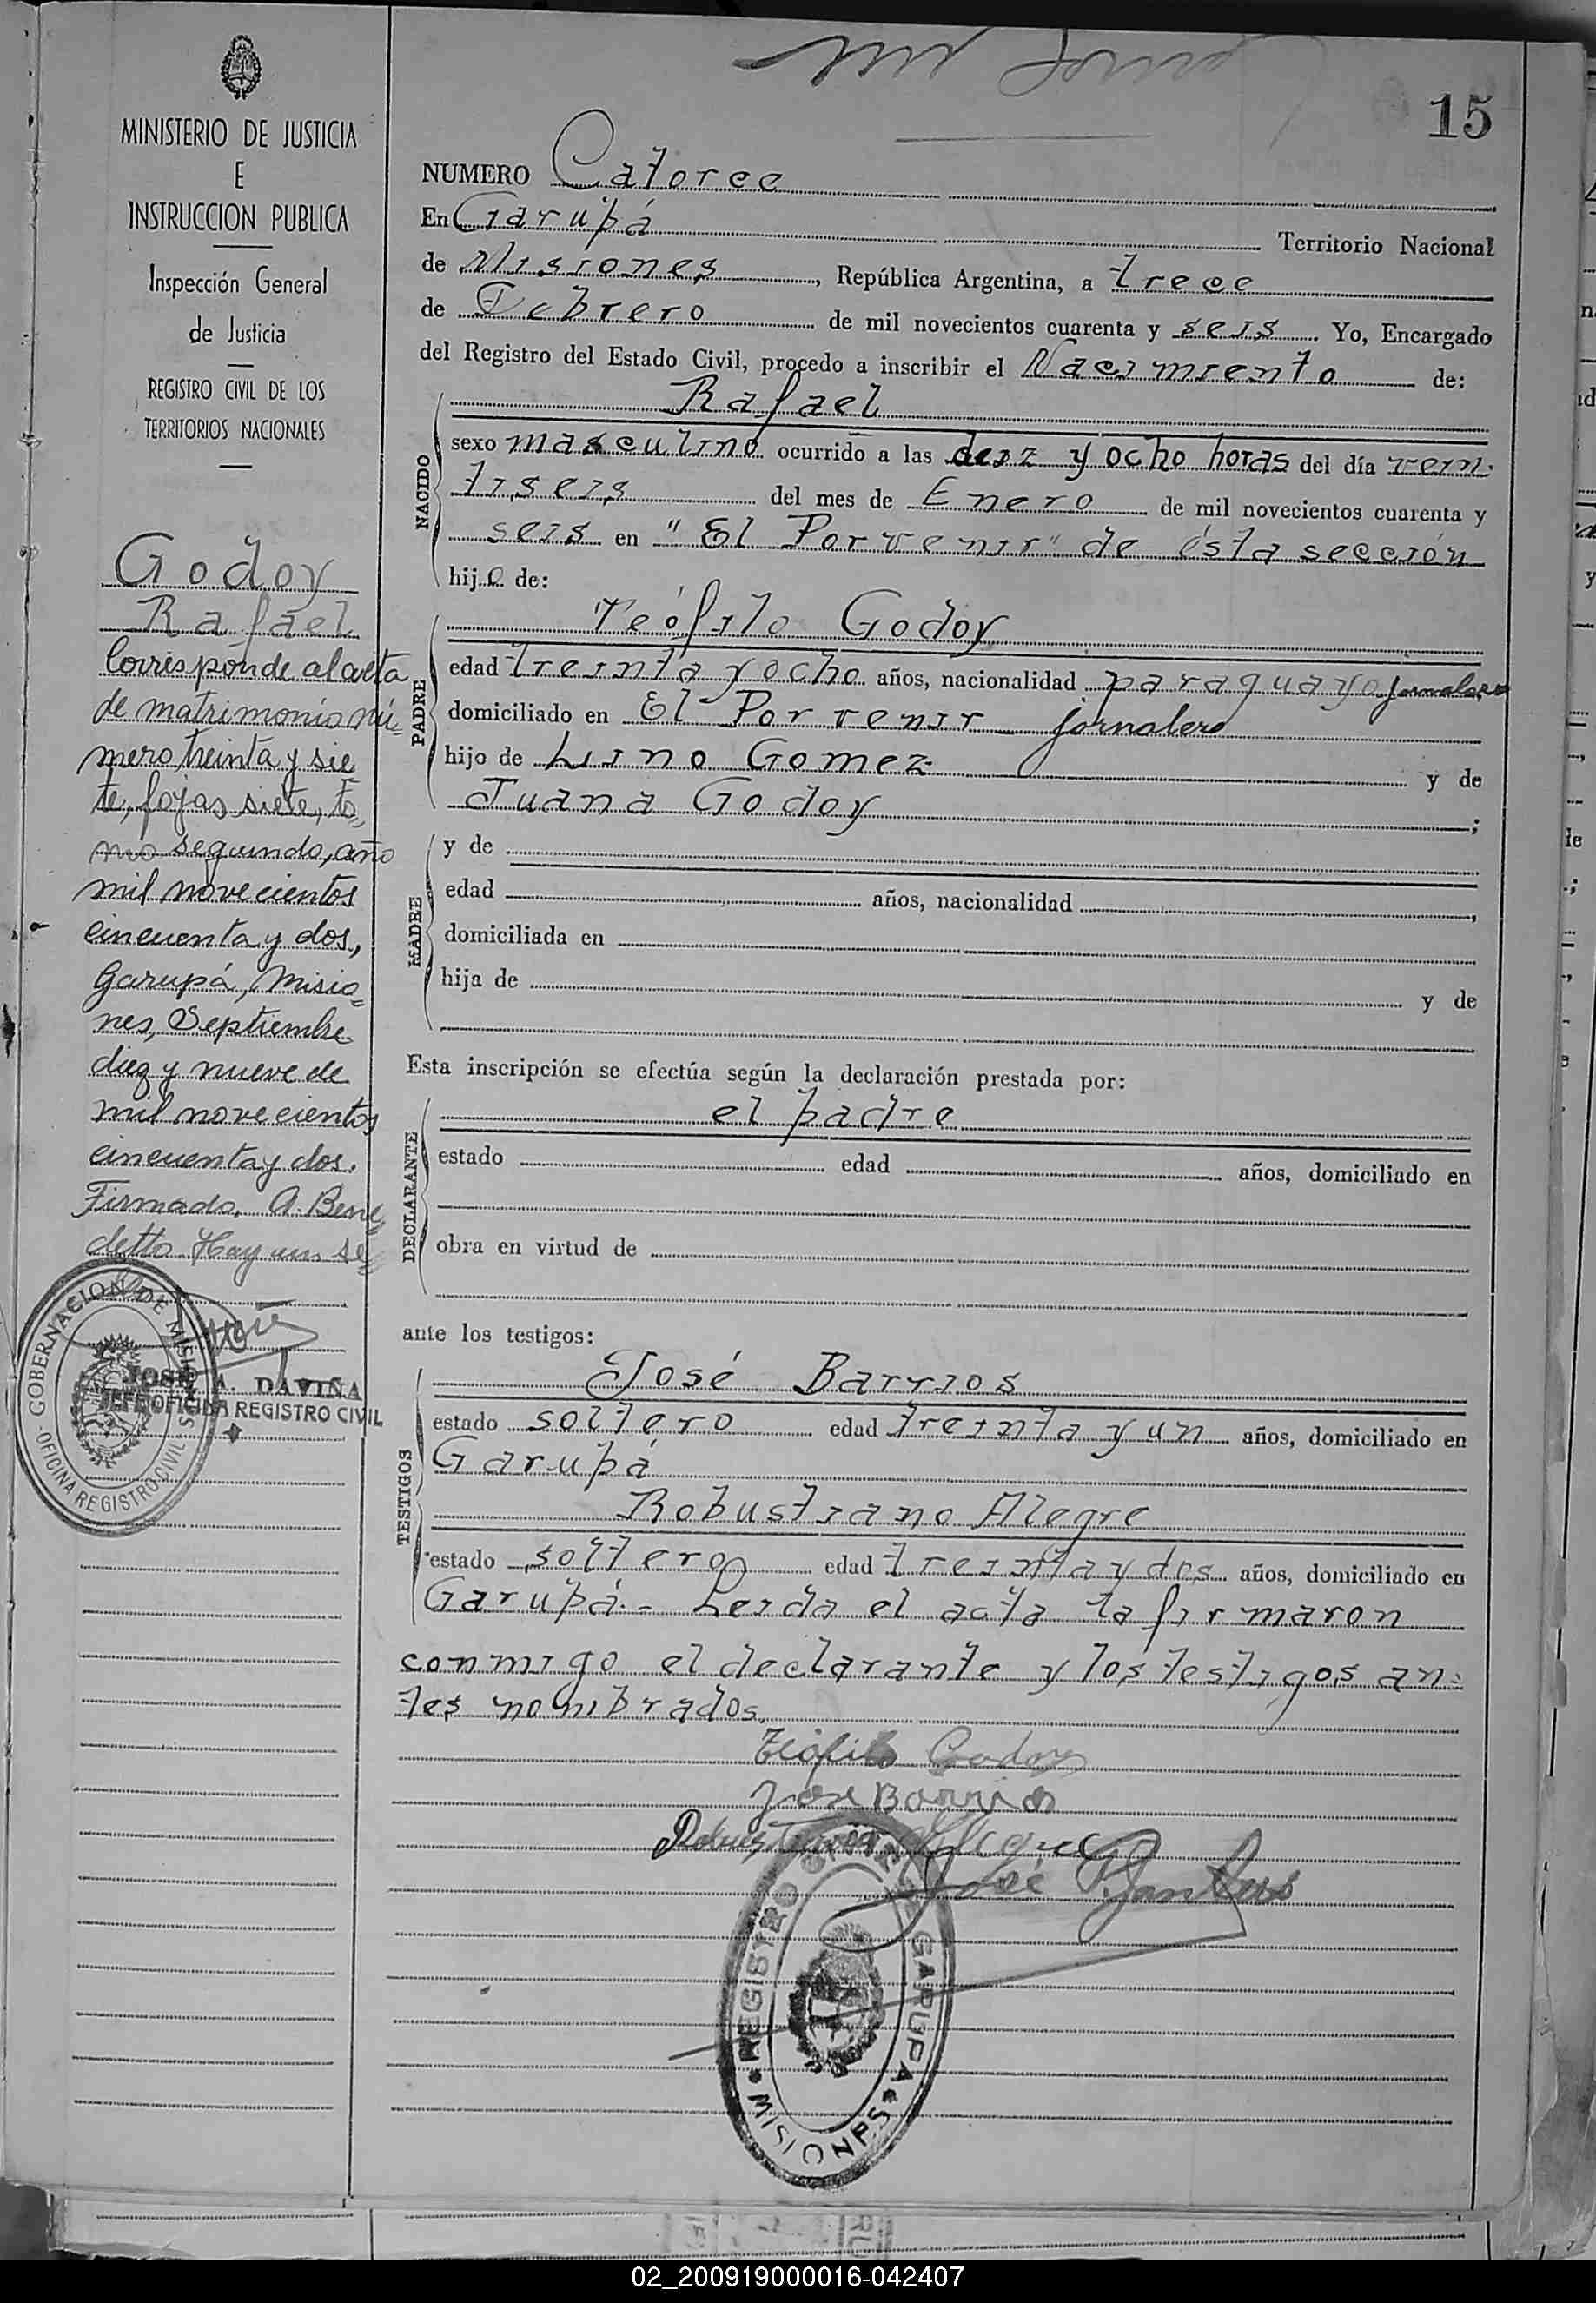 15
MINISTERIO DE JUSTICIA
E
INSTRUCCION PUBLICA
Inspección General
de Justicia
REGISTRO CIVIL DE LOS
TERRITORIOS NACIONALES
Godoy
Rafael
Corresponde al acta
de matrimonio nú-
mero treinta y sie
te, fojas siete, to-
mo segundo, año
mil novecientos
cincuenta y dos,
Garupá, Misio-
nes, Septiembre
diez y nueve de
mil novecientos
cincuenta y dos.
Firmado. A. Bene-
detto Hay un se-
GOBERNACION DE MISIONES
OFICINA REGISTRO CIVIL
JOSE A. DAVIÑA
JEFE OFICINA REGISTRO CIVIL
NUMERO Catorce
En Garupá Territorio Nacional
de Misiones, República Argentina, a trece
de Febrero de mil novecientos cuarenta y seis. Yo, Encargado
del Registro del Estado Civil, procedo a inscribir el Nacimiento de:
NACIDO
Rafael
sexo masculino ocurrido a las diez y ocho horas del día vein-
tiseis del mes de Enero de mil novecientos cuarenta y
seis en "El Porvenir" de ésta sección
hijo de:
PADRE
Teófilo Godoy
edad treinta y ocho años, nacionalidad paraguayo jornalero
domiciliado en El Porvenir jornalero
hijo de Lino Gomez y de
Juana Godoy ;
MADRE
y de
edad años, nacionalidad ,
domiciliada en
hija de y de
Esta inscripción se efectúa según la declaración prestada por:
DECLARANTE
el padre
estado edad años, domiciliado en
obra en virtud de
ante los testigos:
TESTIGOS
José Barrios
estado soltero edad treinta y un años, domiciliado en
Garupá
Robustiano Alegre
estado soltero edad treinta y dos años, domiciliado en
Garupá.- Leida el acta la firmaron
conmigo el declarante y los testigos an-
tes nombrados.
Teófilo Godoy
Jose Barrios
Robustiano Alegre
José
REGISTRO CIVIL DE GARUPA
MISIONES
02_200919000016-042407